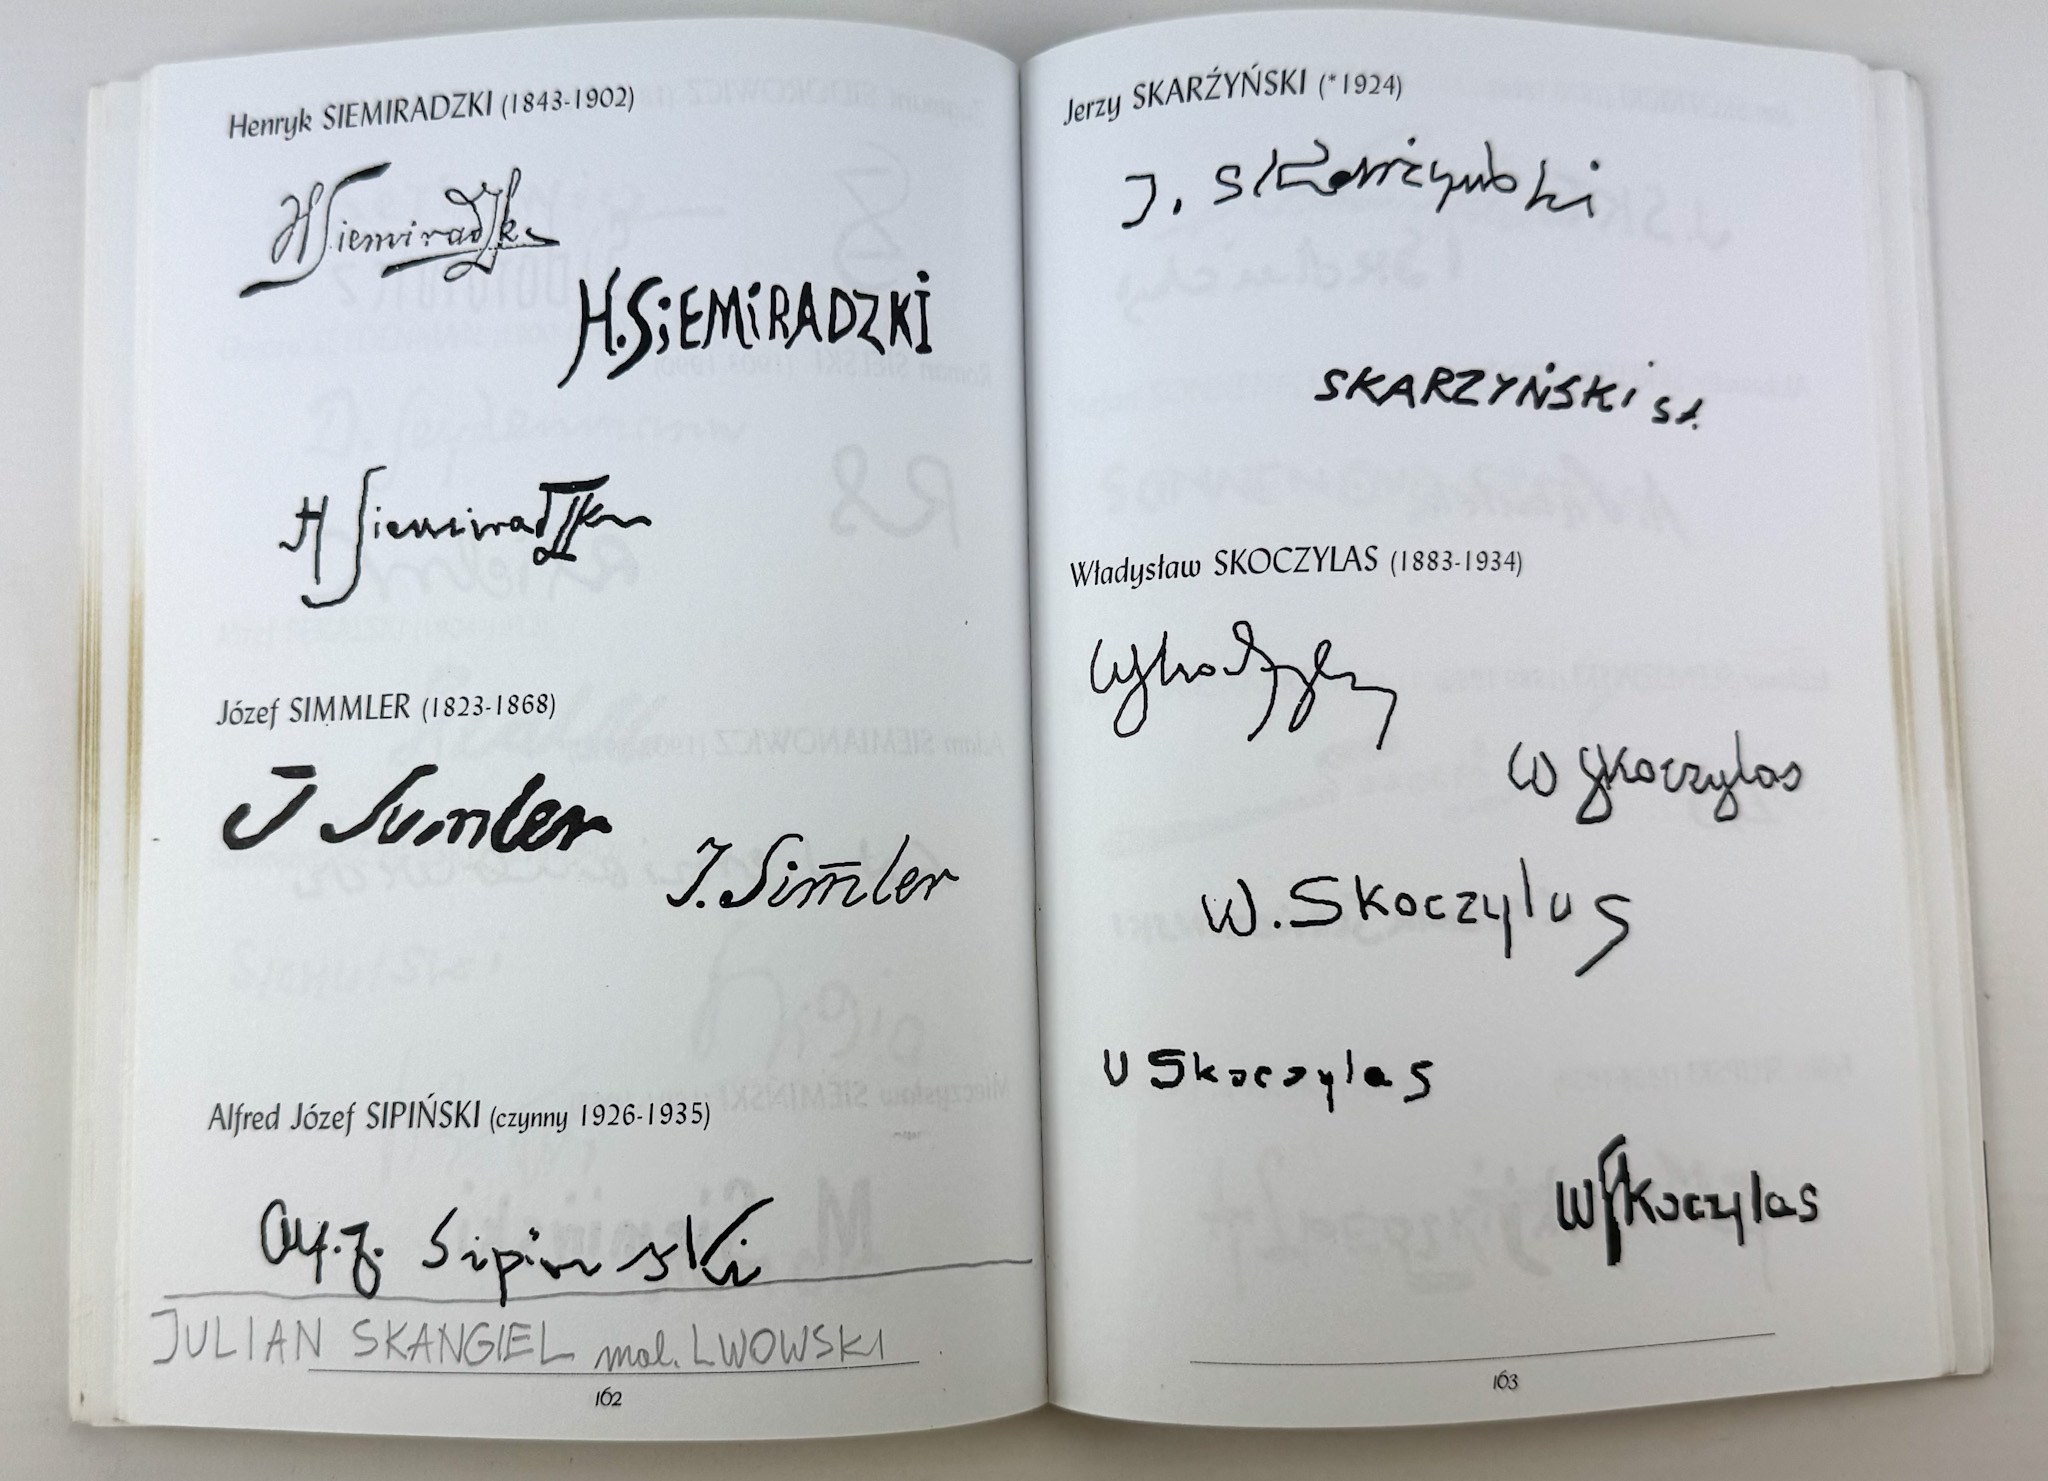 Henryk SIEMIRADZKI (1843-1902)
HSiemiradzki
H.SiEMiRADZKi
H Siemiradzki
Józef SIMMLER (1823-1868)
J Simler
J. Sim̅ler
Alfred Józef SIPIŃSKI (czynny 1926-1935)
Alf. J. Sipinski
JULIAN SKANGIEL mal. LWOWSKI
162
Jerzy SKARŹYŃSKI (*1924)
J. Skarżyński
SKARZYŃSKi
Władysław SKOCZYLAS (1883-1934)
W Skoczylas
W. Skoczylas
Skoczylas
W Skoczylas
163